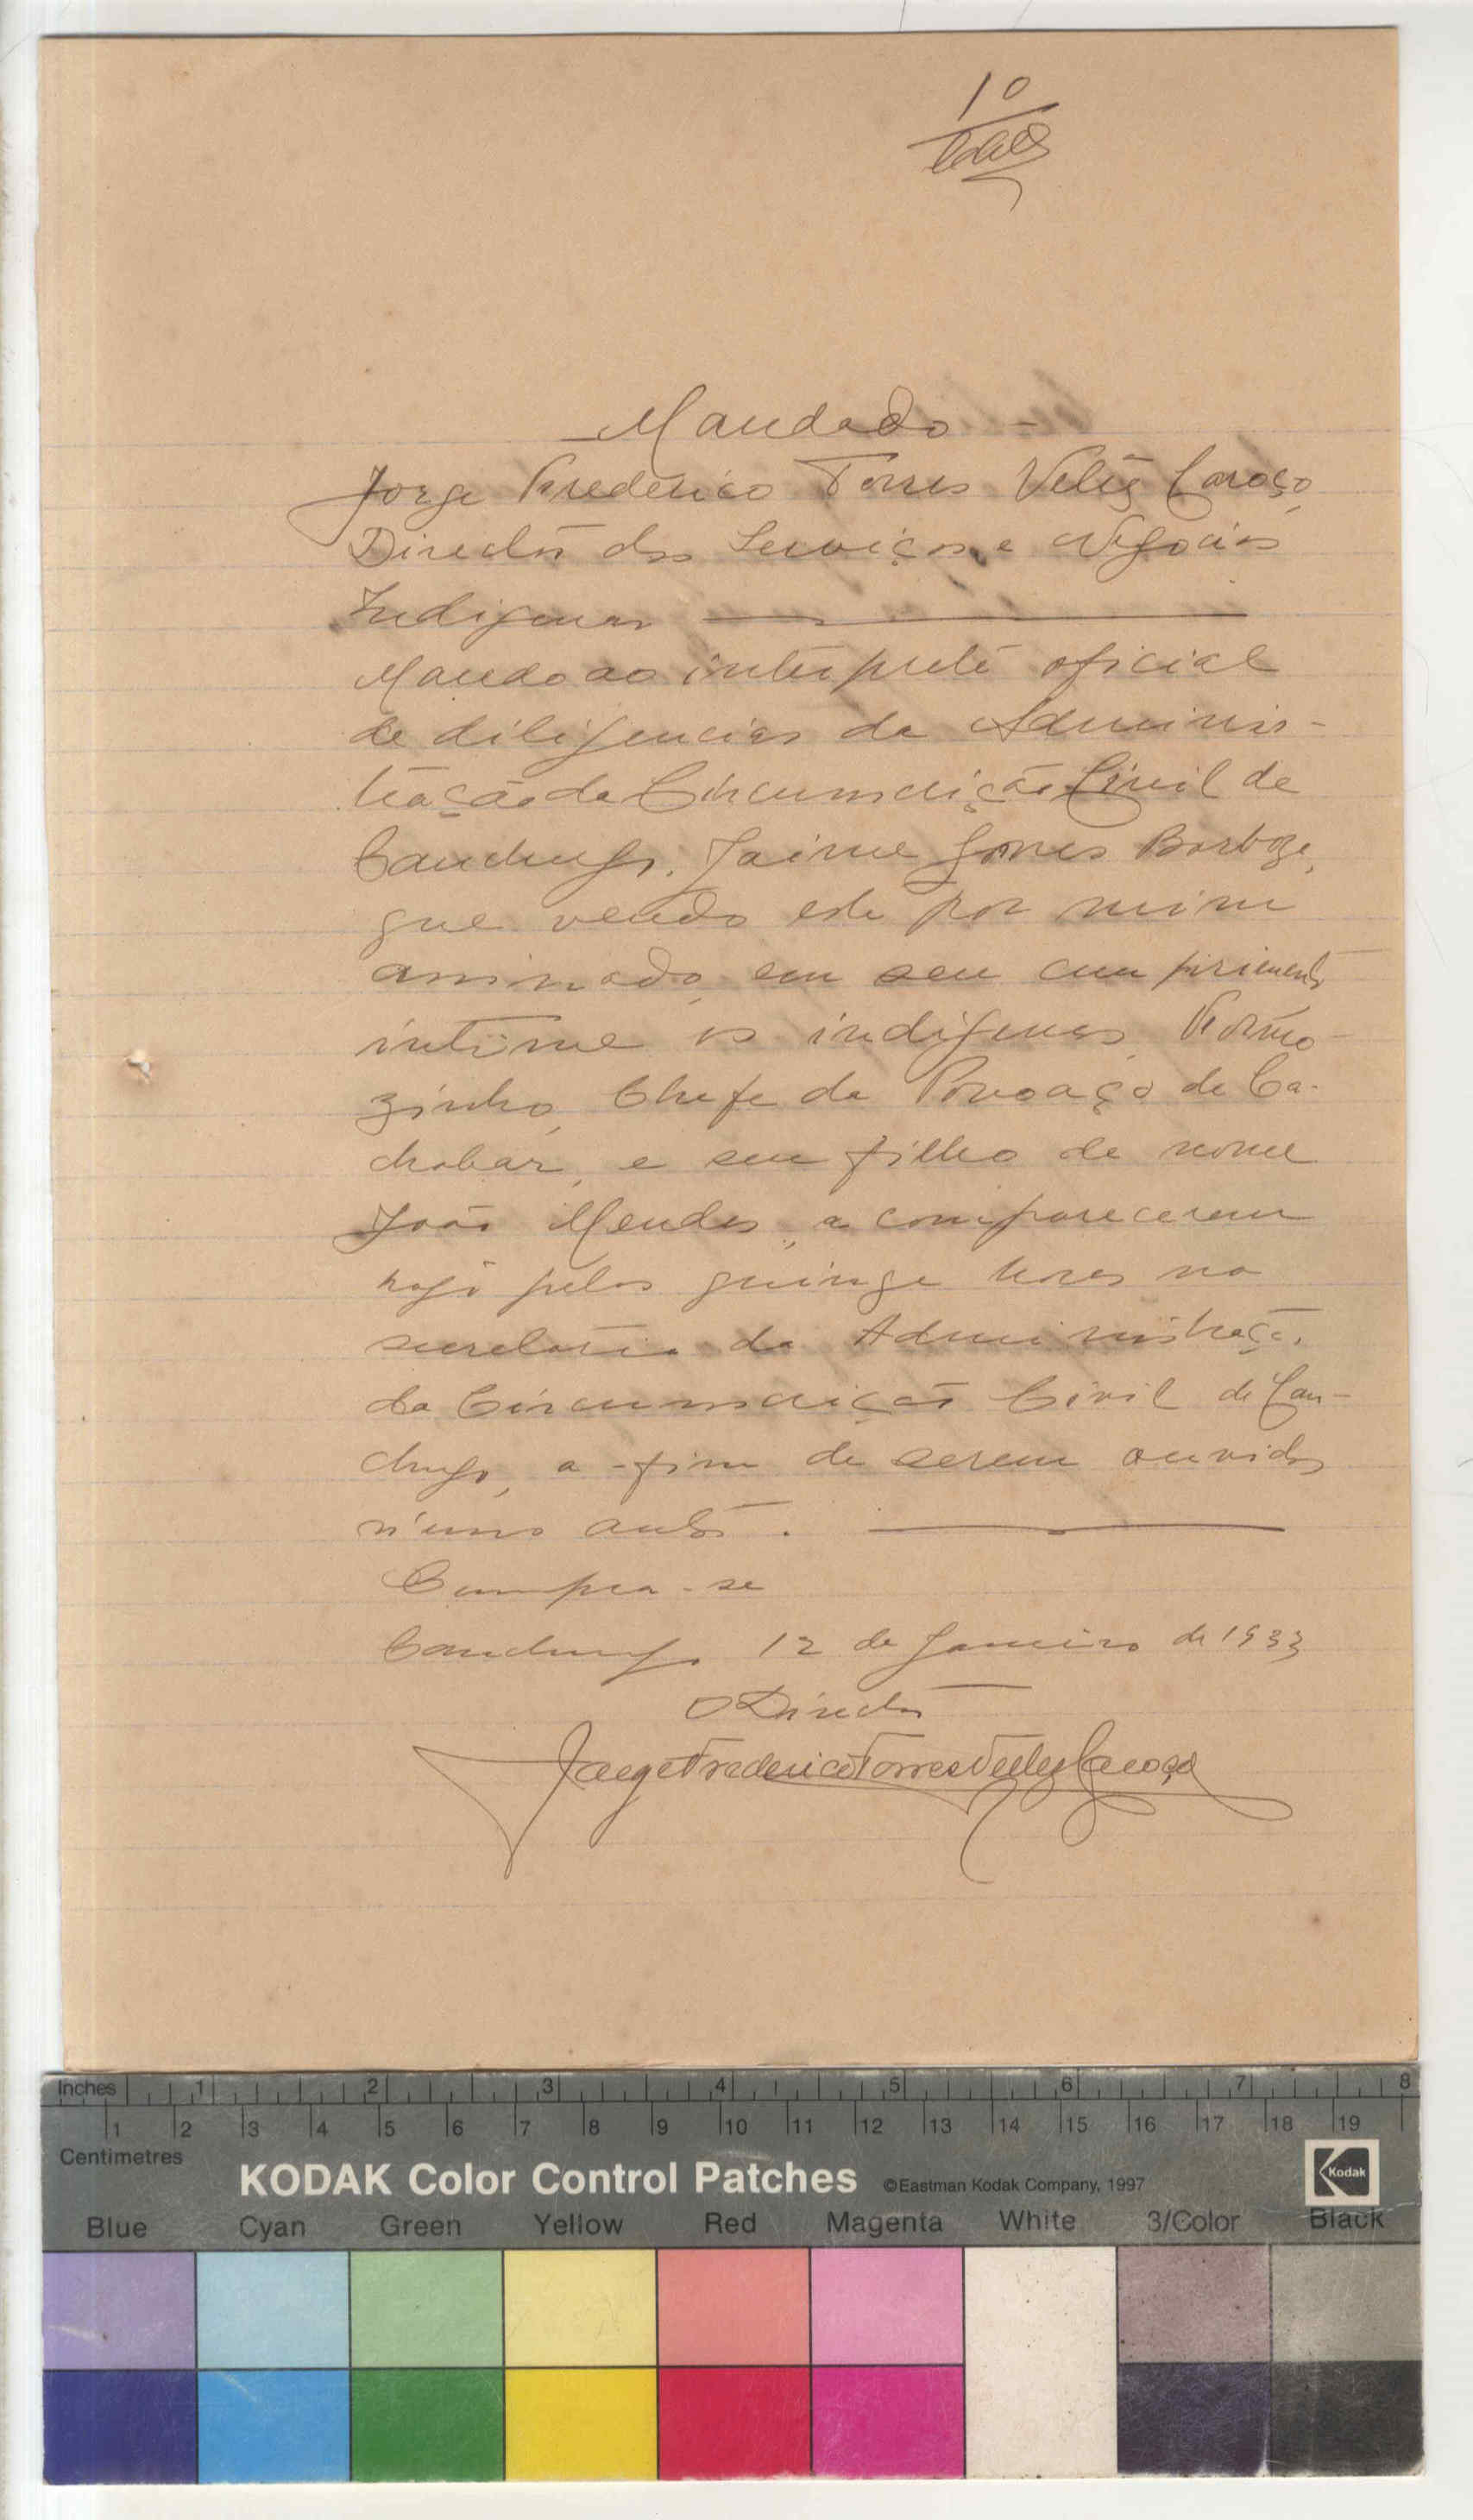 10
Mandado -
Jorge Frederico Torres Velêz Caroço,
Director dos Serviços e Negocios
Indigenas
Mando ao intérprete oficial
de diligencias da Adminis-
tração da Circunscrição Civil de
Canchungo, Jaime Gomes Barboza,
que vendo este por mim
assinado, em seu cumprimento
intime os indigenas Formo-
zinho, Chefe da Povoação de Ca-
chobar, e seu filho de nome
João Mendes, a comparecerem
hoje pelas quinze horas na
secretaria da Administração
da Circunscrição Civil de Can-
chungo, a-fim de serem ouvidos
n'uns autos.
Cumpra-se
Canchungo 12 de Janeiro de 1933
O Director
Jorge Frederico Torres Velez Caroço
Inches 1 2 3 4 5 6 7 8
1 2 3 4 5 6 7 8 9 10 11 12 13 14 15 16 17 18 19
Centimetres
KODAK Color Control Patches ©Eastman Kodak Company, 1997 Kodak
Blue Cyan Green Yellow Red Magenta White 3/Color Black